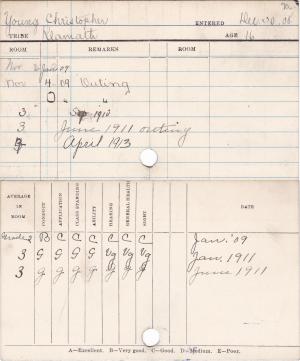 Young Christopher ENTERED Dec 20. 06
TRIBE Klamath AGE 16
ROOM REMARKS ROOM
Nov 2 Jan 09
Nov 4. 09 Outing
0 " "
3 Sep 1910
3 June 1911 outing
April 1913
AVERAGE IN ROOM CONDUCT APPLICATION CLASS STANDING ABILITY HEARING GENERAL HEALTH SIGHT DATE
Grade 2 B C C C C C C Jan. '09
3 G G G G Vg Vg Vg Jan. 1911
3 g g g g Vg Vg g June 1911
A—Excellent. B—Very good. C—Good. D—Medium. E—Poor.